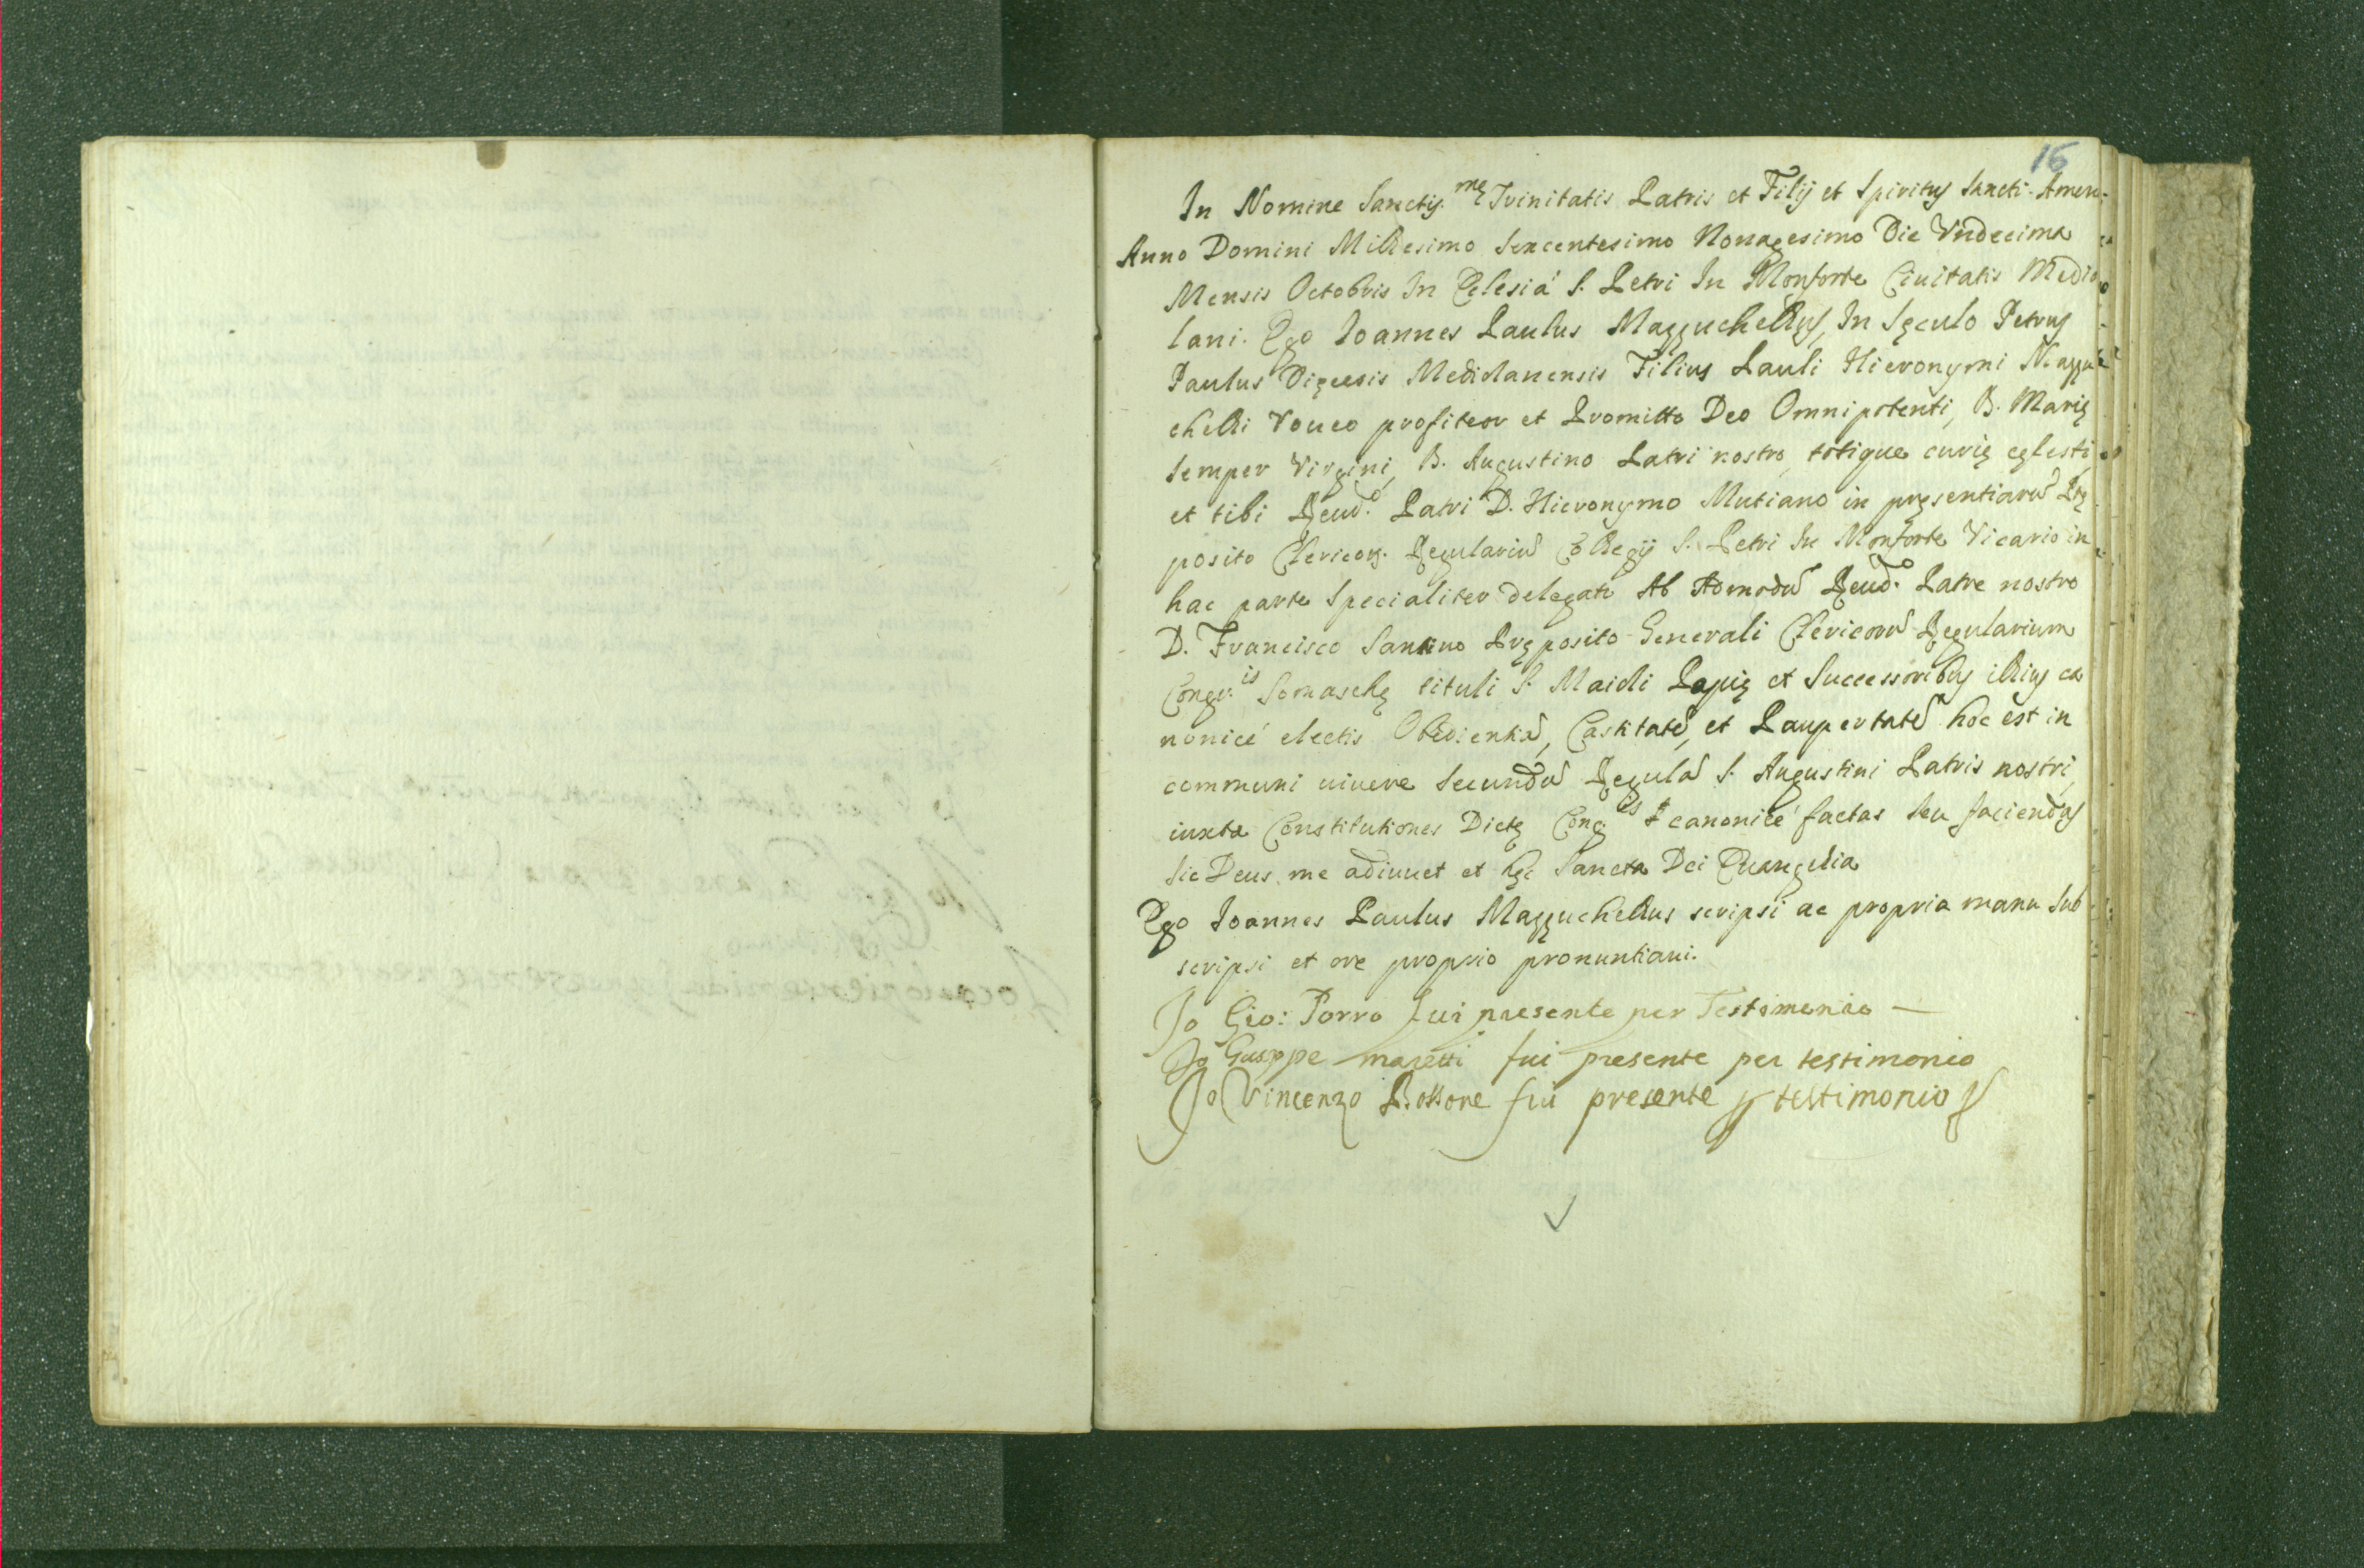 16
In Nomine Sanctis.mę Trinitatis Patris et Filij et Spiritus Sancti. Amen.
Anno Domini Millesimo Sexcentesimo Nonagesimo Die Vndecima
Mensis Octobris In Eclesiá S. Petri In Monforte Ciuitatis Medio
lani. Ego Ioannes Paulus Mazzuchellus, In Sęculo Petrus
Paulus Dięcesis Mediolanensis Filius Pauli Hieronymi Mazzu
chelli Voueo profiteor et Promitto Deo Omnipotenti, B. Marię
semper Virgini, B. Augustino Patri nostro, totique curię cęlesti,
et tibi Reud.o Patri D. Hieronymo Mutiano in pręsentiarũ Prę
posito Clericor. Regulariũ Collegij S. Petri In Monforte Vicario in
hac parte Specialiter delegato Ab Admodũ Reud.o Patre nostro
D. Francisco Santino Pręposito Generali Clericorũ Regularium
Congr.is Somaschę tituli S. Maioli Papię et Successoribus illius ca
nonicé electis Obedientiã, Castitatẽ, et Paupertatẽ hoc est in
communi uiuere secundũ Regulã S. Augustini Patris nostri,
iuxta Constitutiones Dictę Cong.is canonicé factas seu faciendas
sic Deus me adiuuet et hęc Sancta Dei Euangelia
Ego Ioannes Paulus Mazzuchellus scripsi ac propria manu sub
scripsi et ore proprio pronuntiaui.
Io Gio: Porro fui presente per Testimonio
Io Gusppe maretti fui presente per testimonio
Io Vincenzo fui presente p testimonio